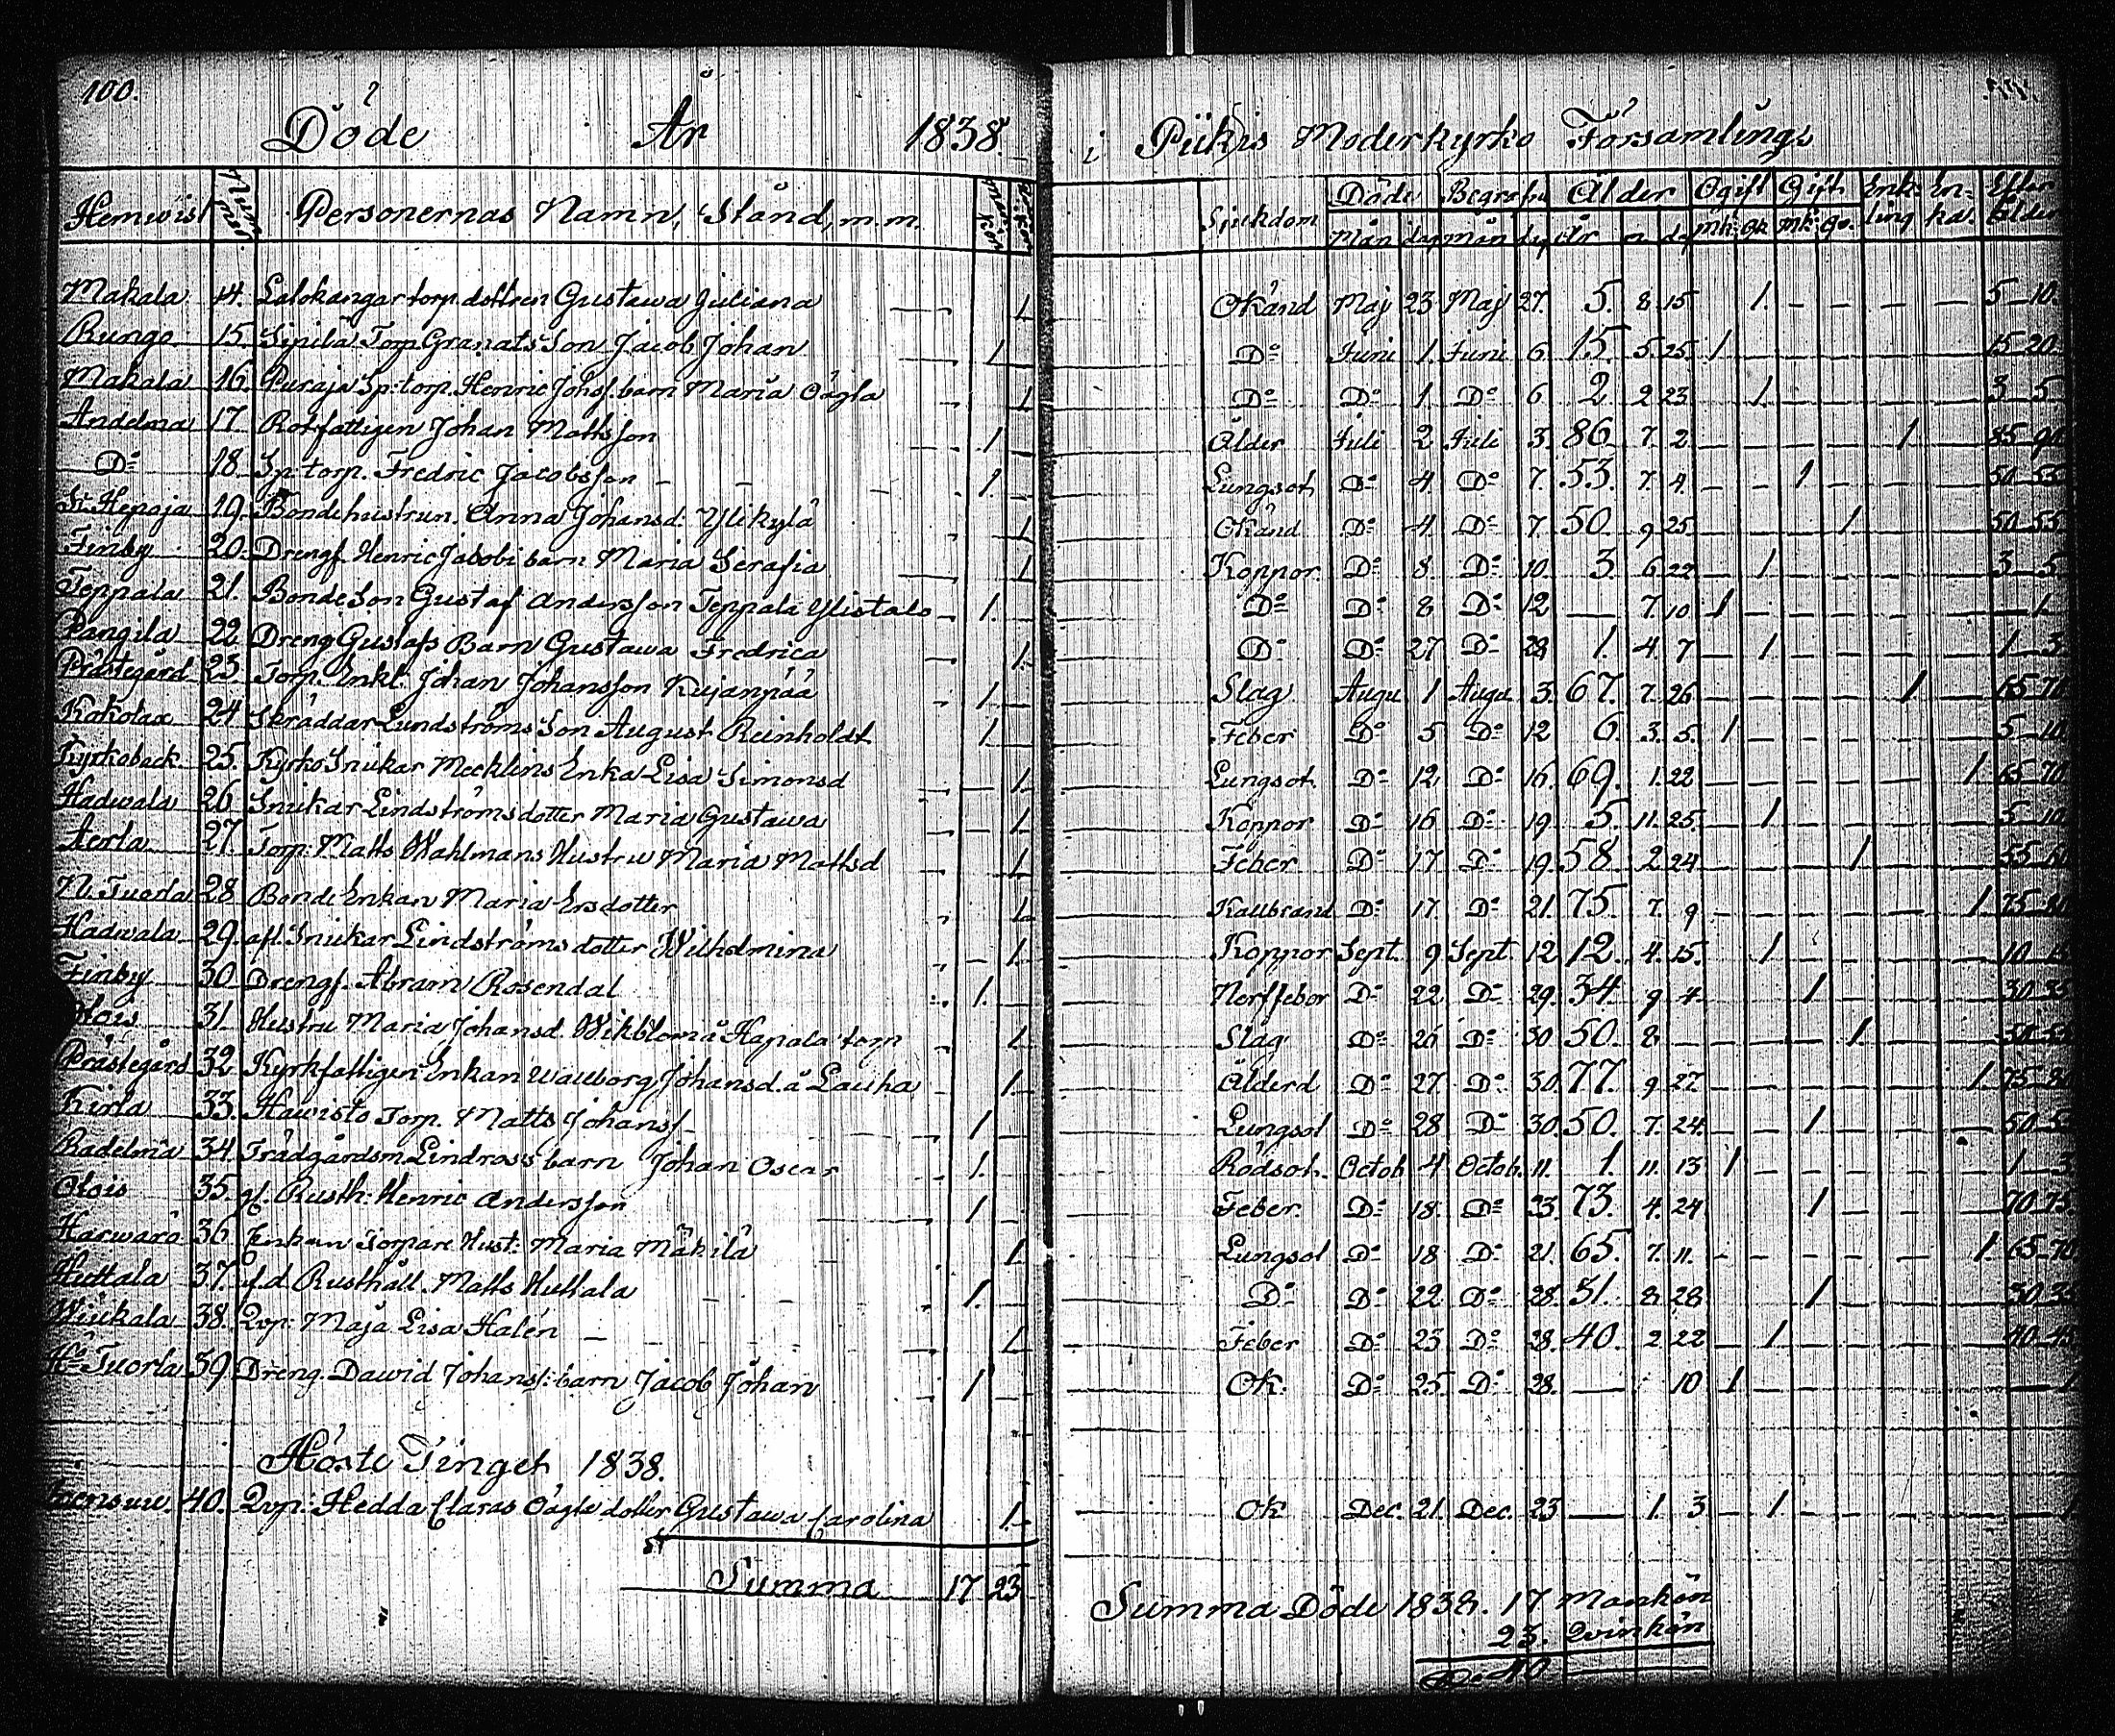 100.
Döde År 1838. i Pükis Moderkyrko Församling
Hemwist Personernas Namn, Stånd, m.m. Sjukdom Döde Begrafne Ålder Ogift Gift Enkling Enkor Efter Ålder
Mån dag Mån dag År m. dag mk. qk. mk. qk.
Makala 14. Lalokangar torp. dottren Gustawa Juliana 1. Okänd Maj 23 Maj 27. 5. 8. 15. 1. 5-10
Rungo 15. Sipilä Torp. Granats Son Jacob Johan 1. Do Juni 1. Juni 6. 15. 5. 25. 1 15-20
Makala 16. Puraja Sp: torp. Henric Johsf. barn Maria 1. Do Do 1. Do 6 2 2 23 1. 3-5
Andelma 17 Rotfattigen Johan Mattsson 1. Ålder Juli 2 Juli 3. 86 7. 2. 1 85-90
Do 18. Sp: torp. Fredric Jacobsson 1. Lungsot Do 4 Do 7. 53. 7. 4. 1 50-55
St. Hepoja 19. Bondehustrun. Anna Johansd: Ylikylä 1. Okänd Do 4 Do 7. 50. 9 25. 1. 50-55
Finby 20. Drengf. Henric Jacobi barn Maria Serafia 1. Koppor. Do 8. Do 10. 3. 6 22 1 3-5
Teppala 21. Bonde Son Gustaf Andersson Teppala Ylistalo 1. Do Do 8 Do 12 — 7. 10 1 1
Pangila 22. Dreng Gustafs Barn Gustawa Fredrica 1. Do Do 27 Do 29 1. 4. 7 1 1-3
Prästegård 23. Torp. Enkl: Johan Johansson Kujanpää 1. Slag Augu. 1 Augu. 3. 67. 7. 26. 1 65-70
Kokolax 24 Skräddar Lundströms Son August Reinholdt 1. Feber Do 5 Do 12 6. 3. 5. 1 5-10
Kyrkoback 25. Kyrko Snikar Mecklins Enka Lisa Simonsd 1. Lungsot. Do 12 Do 16. 69. 1. 22 1. 65-70
Hadwala 26 Snikar Lindströms dotter Maria Gustawa 1. Koppor Do 16 Do 19. 5. 11. 25. 1 5-10
Aerla 27. Torp: Matts Wahlmans Hustru Maria Mattsd 1. Feber Do 17 Do 19. 58. 2. 24. 1 55-60
N. Tuorla 28 Bonde Enkan Maria Ersdotter 1. Kallbrand Do 17 Do 21. 75. 7. 9 1. 75-80
Hadwala 29. afl. Snikar Lindströms dotter Wilhelmina 1. Koppor Sept. 9 Sept. 12 12. 4. 15. 1 10-15
Finby 30 Drengf. Abram Rosendal 1. Nerffeber Do 22 Do 29. 34. 9 4. 1 30-35
31 Hustru Maria Johansd. Wikblom å Hapala torp 1. Slag Do 26 Do 30 50. 8 1. 50-55
Prästegård 32 Kyrkfattigen Enkan Wallborg Johansd. å Lauha 1. Ålderd Do 27. Do 30. 77. 9 27. 1. 75-80
Kirla 33. Hawisto Torp. Matts Johansf. 1 Lungsot Do 28 Do 30. 50. 7. 24. 1 50-55
Radelma 34. Trädgårdsm. Lindross barn Johan Oscar 1. Rödsot. Octob. 4 Octob. 11. 1. 11. 13 1 1-3
Otois 35. gf. Rusth: Henric Andersson 1 Feber. Do 18. Do 23. 73. 4. 24 1 70-75
Harwarö 36. Enkan Torpare Hust: Maria Mäkilä 1. Lungsot Do 18 Do 21. 65. 7. 11. 1. 65-70
Huttala 37. f.d. Rusthåll. Matts Huttala 1. Do Do 22 Do 28. 31. 8 28 1 30-35
Wiukala 38. Qvp: Maja Lisa Halén 1. Feber Do 23 Do 28. 40. 2. 22 1 40-45
Tuorla 39. Dreng. Dawid Johansf: barn Jacob Johan 1 Ok. Do 25. Do 28. — 10 1 1
Höste Tinget 1838.
40. Qvp: Hedda Claras Oägta dotter Gustawa Carolina 1. Ok Dec. 21. Dec. 23 — 1. 3 1.
Summa 17 23
Summa Döde 1838. 17 Mankön
23. Qvinkön
40